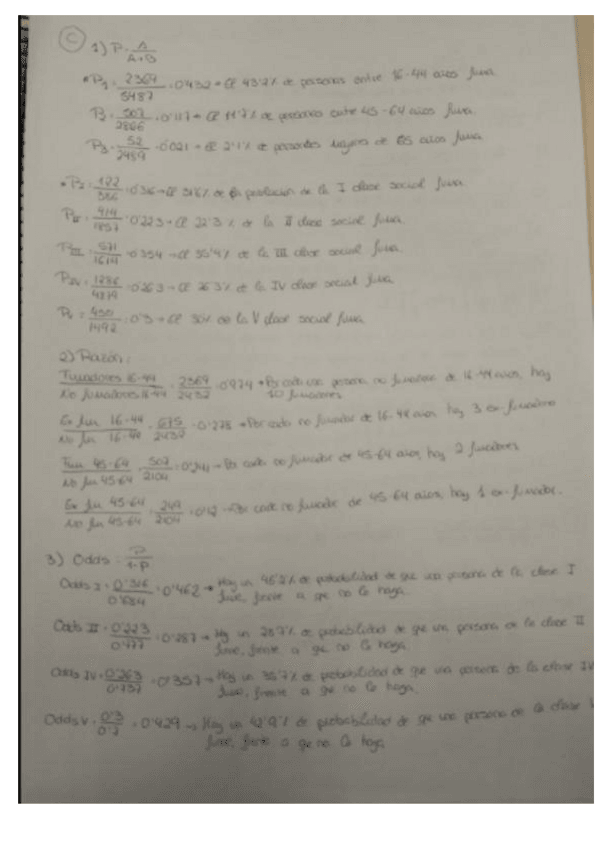 C
1) P = A / A+B
* P1 = 2369 / 5487 = 0'432 → El 43'2% de personas entre 16-44 años fuma.
P2 = 507 / 2866 = 0'117 → El 11'7% de personas entre 45-64 años fuma.
P3 = 52 / 2489 = 0'021 → El 2'1% de personas mayores de 65 años fuma.
* PI = 122 / 386 = 0'316 → El 31'6% de la población de la I clase social fuma.
PII = 414 / 1857 = 0'223 → El 22'3% de la II clase social fuma.
PIII = 571 / 1614 = 0'354 → El 35'4% de la III clase social fuma.
PIV = 1286 / 4879 = 0'263 → El 26'3% de la IV clase social fuma.
PV = 450 / 1492 = 0'3 → El 30% de la V clase social fuma.
2) Razón:
Fumadores 16-44 / No fumadores 16-44 = 2369 / 2432 = 0'974 → Por cada una persona no fumadora de 16-44 años, hay
10 fumadores.
Ex fum 16-44 / No fu 16-44 = 675 / 2432 = 0'278 → Por cada no fumador de 16-44 años hay 3 ex-fumadores
Fum 45-64 / No fu 45-64 = 507 / 2104 = 0'241 → Por cada no fumador de 45-64 años, hay 2 fumadores.
Ex fu 45-64 / No fu 45-64 = 249 / 2104 = 0'12 → Por cada no fumador de 45-64 años, hay 1 ex-fumador.
3) Odds = P / 1-P
Odds I = 0'316 / 0'684 = 0'462 → Hay un 46'2% de probabilidad de que una persona de la clase I
fume, frente a que no lo haga.
Odds II = 0'223 / 0'777 = 0'287 → Hay un 28'7% de probabilidad de que una persona de la clase II
fume, frente a que no lo haga.
Odds IV = 0'263 / 0'737 = 0'357 → Hay un 35'7% de probabilidad de que una persona de la clase IV
fume, frente a que no lo haga.
Odds V = 0'3 / 0'7 = 0'429 → Hay un 42'9% de probabilidad de que una persona de la clase V
fume, frente a que no lo haga